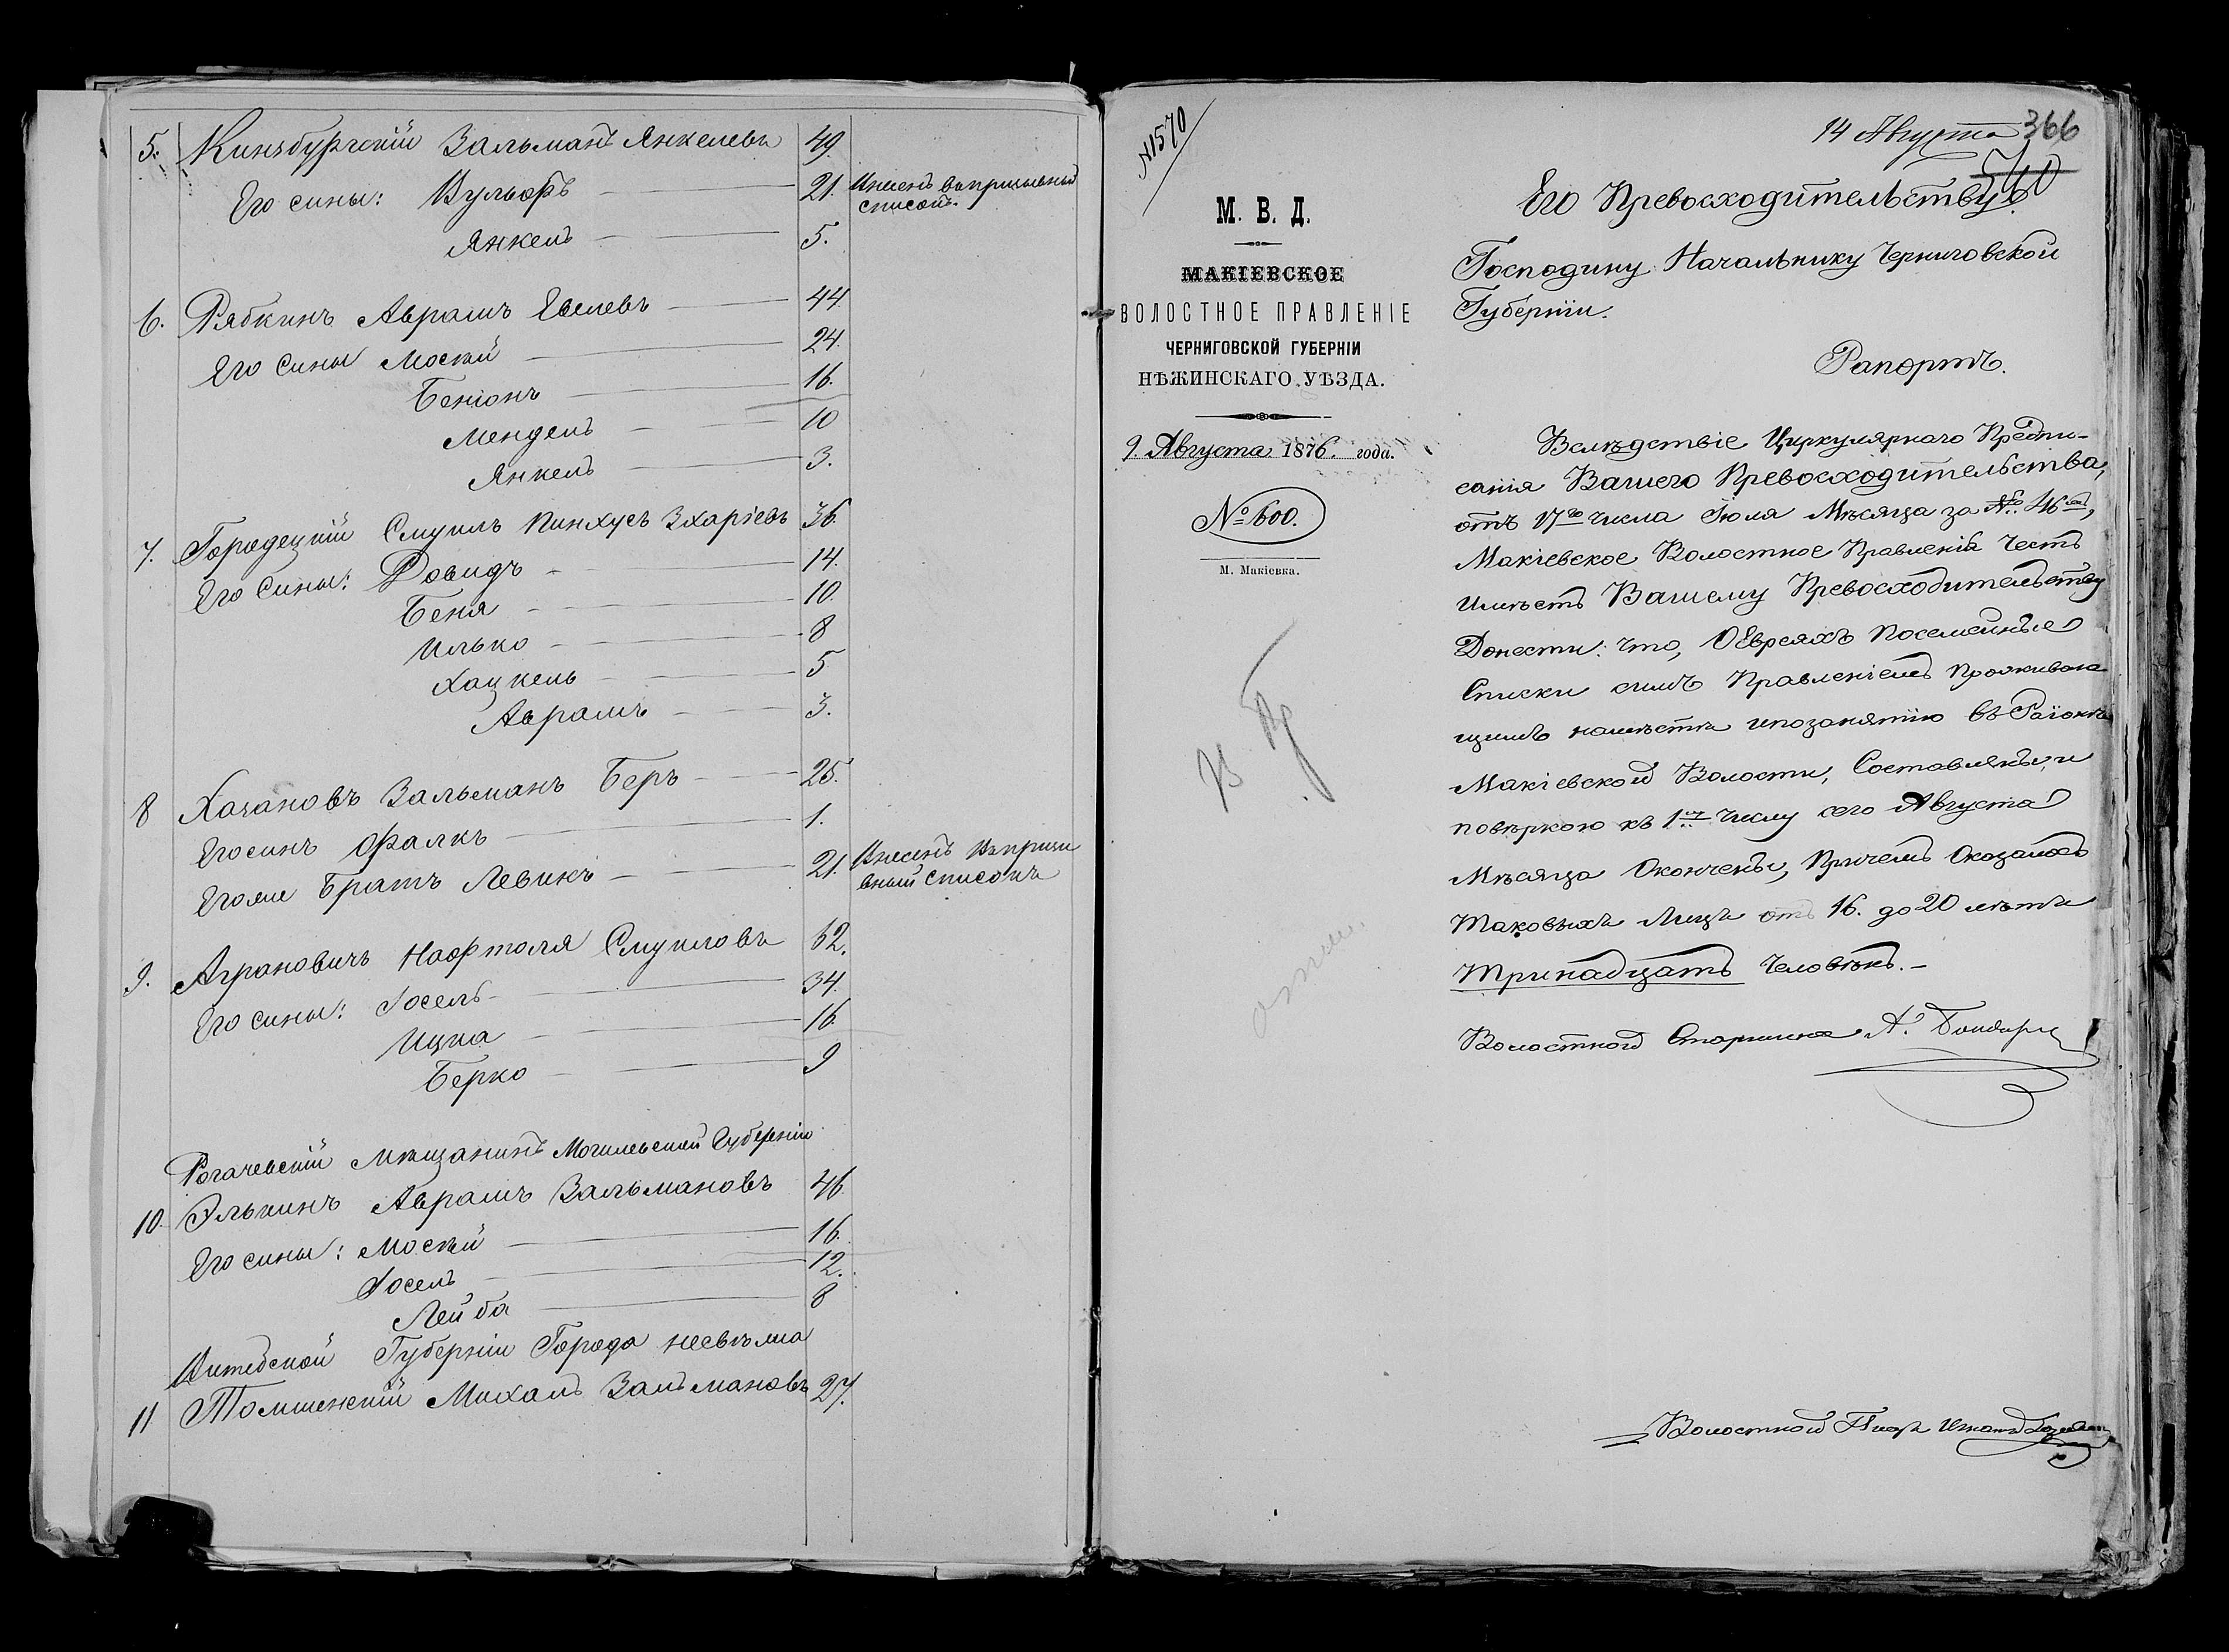 5. Кинзбургскій Зальманъ Янкелевъ 49.
Его сины: Вульофъ 21. Внесенъ въ призывный
списокъ.
Янкель 5.
6. Рябкинъ Аврамъ Евелевъ 44
Его Сины Москѣй 24.
Беніонъ 16.
Мендель 10
Янкель 3.
7. Городецкій Смуилъ Пинхусъ Зхаріевъ 36.
Его Сины: Довидъ 14.
Беня 10.
Илько 8
Хацкель 5
Аврамъ 3.
8 Хачановъ Зальманъ Беръ 25.
Его синъ Фалкъ 1.
Егоже Братъ Левикъ 21. Внесенъ въ призы
вный списокъ
9. Аграновичъ Нафтоля Смуиловъ 62.
Его сины: Іосель 34.
Ицка 16.
Берко 9
Рогачевскій мѣщанинъ Могилевской Губерніи
10. Элькинъ Аврамъ Зальмановъ 46
Его сины: Москѣй 16.
Іосель 12.
Лейба 8
Витебской Губерніи Города Невѣля
11 Михаль Зальмановъ 27.
№ 1570
14 Августа 366
М. В. Д.
МАКІЕВСКОЕ
ВОЛОСТНОЕ ПРАВЛЕНІЕ
ЧЕРНИГОВСКОЙ ГУБЕРНІИ
НѢЖИНСКАГО УѢЗДА.
9. Августа 1876. года.
№ 600.
М. Макіевка.
Его Превосходительству
Господину Начальнику Черниговской
Губерніи.
Рапортъ.
Вслѣдствіе Циркулярнаго Предпи-
санія Вашего Превосходительства,
отъ 17го числа Іюля Мѣсяца за №
Макіевское Волостное Правленія Честь
имѣетъ Вашему Превосходительству
Донести: что, О Евреяхъ посемейные
Списки симъ Правленіемъ проживаю
щимъ намѣстѣ ипозанятію въ Раіонѣ
Макіевской Волости, Составлены, и
повѣркою къ 1му числу сего Августа
Мѣсяца Окончены, Причемъ Оказалось
Таковыхъ Лицъ отъ 16. до 20 лѣтъ
Тринадцать Человѣкъ.-
Волостной Старшина А. Бондарь
Волостной Писарь